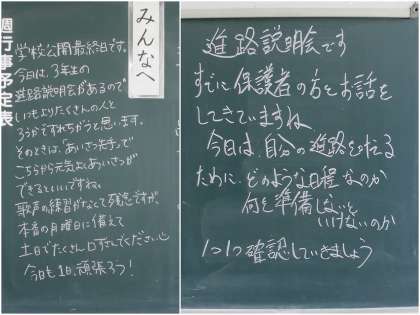 みんなへ
週行事予定表
学校公開最終日です。
今日は、3年生の
進路説明会があるので
いつもよりたくさんの人と
ろうかですれちがうと思います。
そのときは、「あいさつ先手」で
こちらから元気よくあいさつが
できるといいですね。
歌声の練習がなくて残念ですが、
本番の月曜日に備えて
土日でたくさん口ずさんでください
今日も1日、頑張ろう!
進路説明会です
すでに保護者の方とお話を
してきていますね
今日は、自分の進路を
ために、どのような日程なのか
何を準備しないと
いけないのか
1つ1つ確認していきましょう